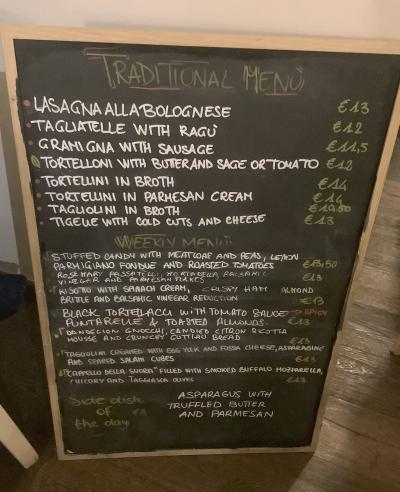 TRADITIONAL MENÙ
LASAGNA ALLA BOLOGNESE €13
TAGLIATELLE WITH RAGÙ €12
GRAMIGNA WITH SAUSAGE €11,5
TORTELLONI WITH BUTTER AND SAGE OR TOMATO €12
TORTELLINI IN BROTH €14
TORTELLINI IN PARMESAN CREAM €14
TAGLIOLINI IN BROTH
TIGELLE WITH COLD CUTS AND CHEESE €13
WEEKLY MENÙ
STUFFED CANDY WITH MEATLOAF AND PEAS, LEMON
PARMIGIANO FONDUE AND ROASTED TOMATOES
ROSEMARY PASSATELLI, MORTADELLA, BALSAMIC
VINEGAR AND PARMESAN FLAKES €13
RISOTTO WITH SPINACH CREAM, CRISPY HAM ALMOND
BRITTLE AND BALSAMIC VINEGAR REDUCTION €13
BLACK TORTELLACCI WITH TOMATO SAUCE SPICY
PUNTARELLE & TOASTED ALMONDS €13
DANDELION GNOCCHI, CANDIED CITRON RICOTTA
MOUSSE AND CRUNCHY GUTTIAU BREAD €13
TAGLIOLINI CREAMED WITH EGG YOLK AND FOSSA CHEESE, ASPARAGINE
AND SEARED SALAMI CUBES €13
"CAPPELLO DELLA SUORA" FILLED WITH SMOKED BUFFALO MOZZARELLA,
CHICORY AND TAGGIASCA OLIVES €13
Side dish
of €8
the day
ASPARAGUS WITH
TRUFFLED BUTTER
AND PARMESAN